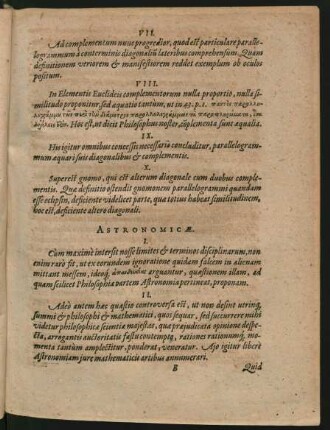 VII.
Ad complementum nunc progredior, quod est particulare paralle-
logrammum à conterminis diagonaliũ lateribus comprehensum. Quam
definitionem veriorem & manifestiorem reddet exemplum ob oculos
positum.
VIII.
In Elementis Euclideis complementorum nulla proportio, nulla si-
militudo proponitur, sed æquatio tantum, ut in 43. p. 1.
Hoc est, ut dicit Philosophus noster, cõplementa sunt æqualia.
IX.
Hinc igitur omnibus concessis necessariò concluditur, parallelogram-
mum æquari suis diagonalibus & complementis.
X.
Superest gnomo, qui est alterum diagonale cum duobus comple-
mentis. Qua definitio ostendit gnomonem parallelogrammi quandam
esse eclipsin, deficiente videlicet parte, qua totius habeat similitudinem,
hoc est, deficiente altero diagonali.
ASTRONOMICÆ.
I.
Cùm maximè intersit nosse limites & terminos disciplinarum, non
enim rarò fit, ut ex eorundem ignoratione quidam falcem in alienam
mittant messem, ideoq́; arguantur, quæstionem illam, ad
quam scilicet Philosophiæ partem Astronomia pertineat, proponam.
II.
Adeò autem hæc quæstio controversa est, ut non desint utrinq́;
summi & philosophi & mathematici, quos sequar, sed succurrere mihi
videtur philosophica scientiæ majestas, qua præjudicata opinione despe-
cta, arrogantis auctoritatis fastu contempto, rationes rationumq́; mo-
menta tantum amplectitur, ponderat, veneratur. Ajo igitur liberè
Astronomiam jure mathematicis artibus annumerari.
B Quid